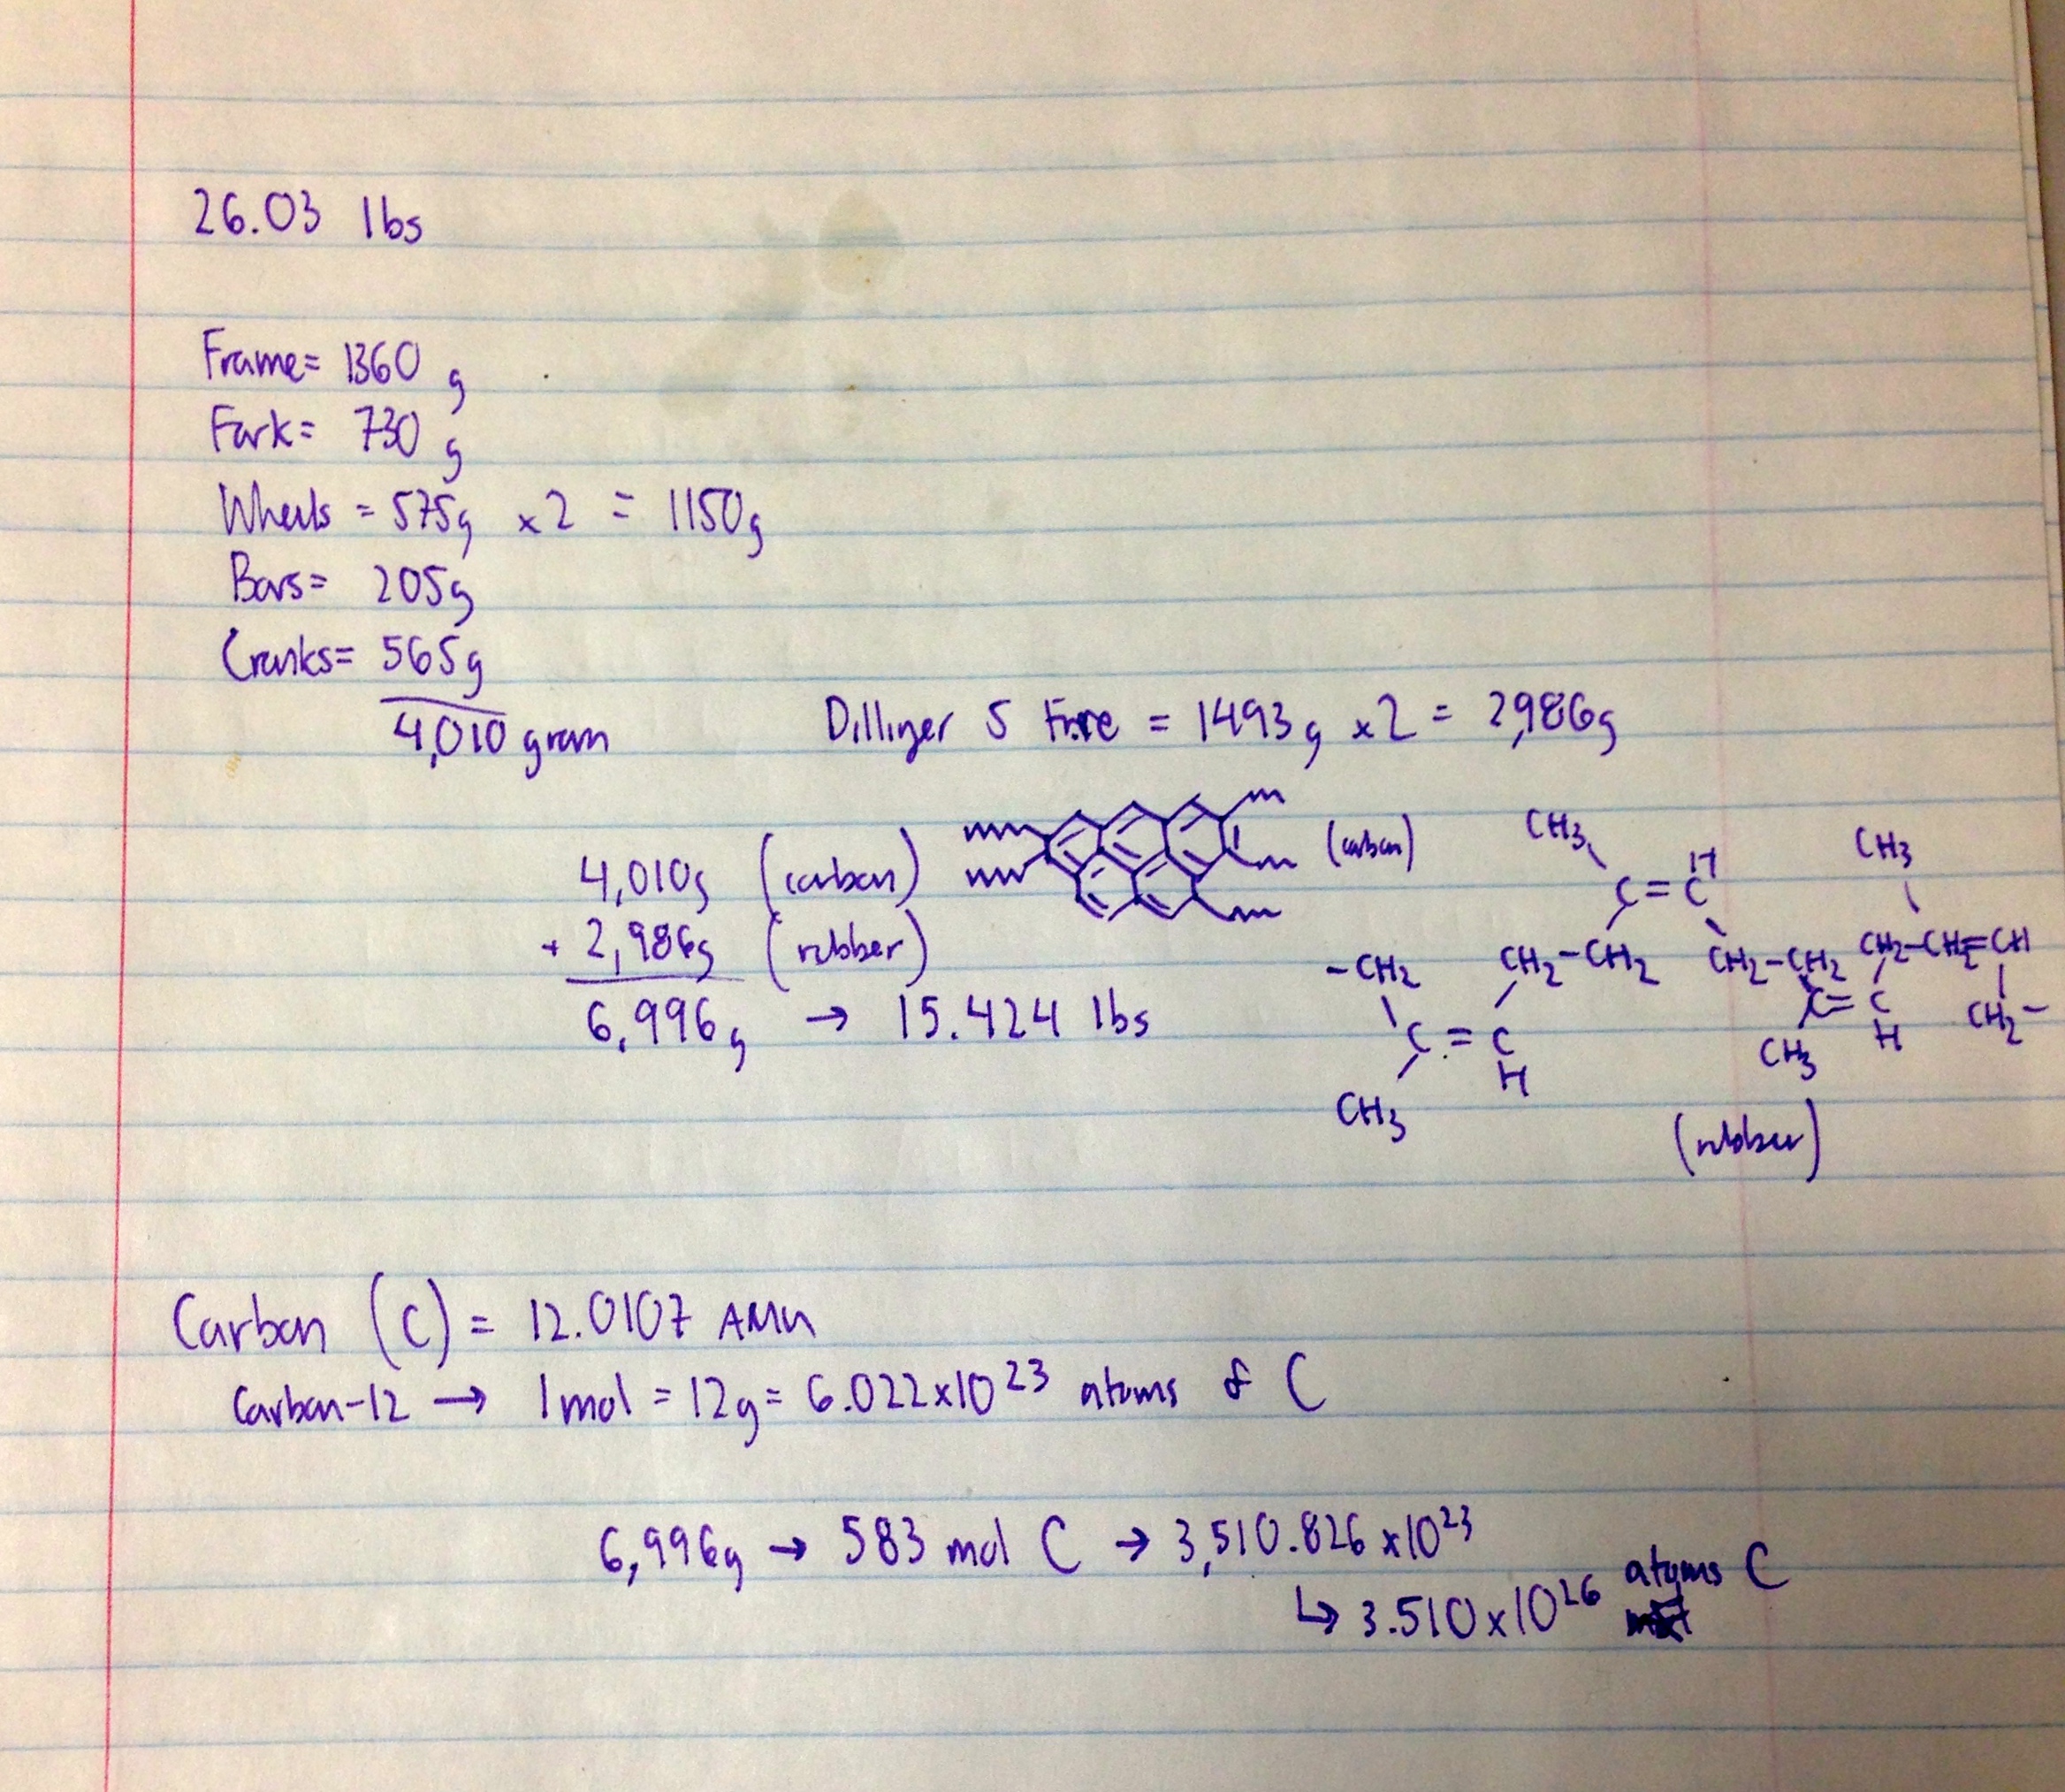 26.03 lbs
Frame= 1360 g
Fork= 730 g
Wheels = 575g x2 = 1150g
Bars= 205g
Cranks= 565g
4,010 gram
Dillinger 5 Tire = 1493g x2 = 2,986g
4,010g (carbon)
(carbon)
+ 2,986g (rubber)
6,996g → 15.424 lbs
CH3
CH3
C=C
H
-CH2
CH2-CH2
CH2-CH2
CH2-CH2=CH
C=C
C=C
CH2-
H
H
CH3
CH3
(rubber)
Carbon (C) = 12.0107 AMU
Carbon-12 → 1mol = 12g = 6.022x10²³ atoms of C
6,996g → 583 mol C → 3,510.826 x10²³
↳ 3.510x10²⁶ atoms C